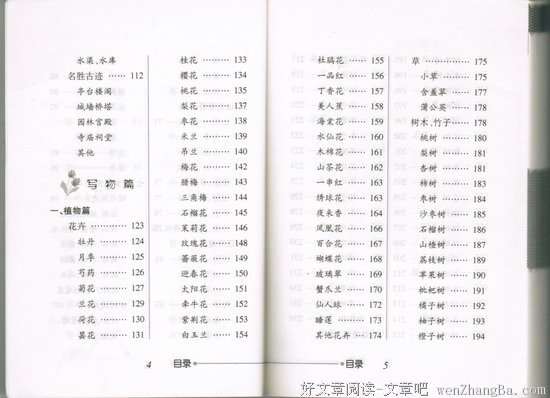 水渠、水库
名胜古迹 …… 112
亭台楼阁
城墙桥塔
园林宫殿
寺庙祠堂
其他
写物篇
一、植物篇
花卉 ……… 123
牡丹 ……… 124
月季 ……… 125
芍药 ……… 126
菊花 ……… 127
兰花 ……… 129
荷花 ……… 130
昙花 ……… 131
桂花 ……… 133
樱花 ……… 134
桃花 ……… 135
梨花 ……… 137
枣花 ……… 138
米兰 ……… 139
吊兰 ……… 140
梅花 ……… 142
腊梅 ……… 143
三角梅 …… 144
石榴花 …… 145
茉莉花 …… 146
玫瑰花 …… 148
蔷薇花 …… 149
迎春花 …… 150
太阳花 …… 151
牵牛花 …… 152
紫荆花 …… 153
白玉兰 …… 154
4 目录
杜鹃花 …… 155
一品红 …… 156
丁香花 …… 157
美人蕉 …… 158
海棠花 …… 159
水仙花 …… 160
木棉花 …… 161
山茶花 …… 162
一串红 …… 163
绣球花 …… 164
夜来香 …… 165
凤凰花 …… 166
百合花 …… 167
蝴蝶花 …… 168
玻璃翠 …… 169
蟹爪兰 …… 170
仙人球 …… 172
睡莲 ……… 173
其他花卉 …… 174
草 ………… 175
小草 ……… 175
含羞草 …… 177
蒲公英 …… 178
树木、竹子 …… 178
桃树 ……… 180
梨树 ……… 181
杏树 ……… 181
柿树 ……… 183
枣树 ……… 184
沙枣树 …… 185
石榴树 …… 186
山楂树 …… 188
荔枝树 …… 189
苹果树 …… 190
枇杷树 …… 191
橘子树 …… 192
柚子树 …… 193
橙子树 …… 194
目录 5
好文章阅读-文章吧 wenZhangBa.com